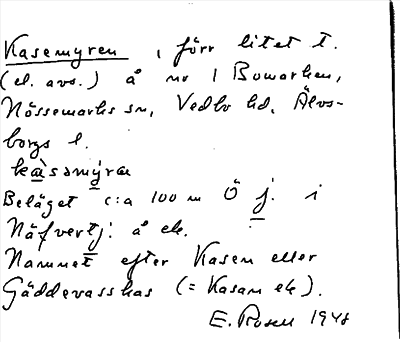 Kasemyren, förr litet t.
(el. avs.) å nr 1 Bowarken,
Nössemarks sn, Vedbo hd, Älvs-
borgs l.
kàsəmýra
Beläget c:a 100 m Ö j. i
Näfvertj. å ek.
Namnet efter Kasen eller
Gäddevasskas (= Kasam ek).
E. Rosell 1948